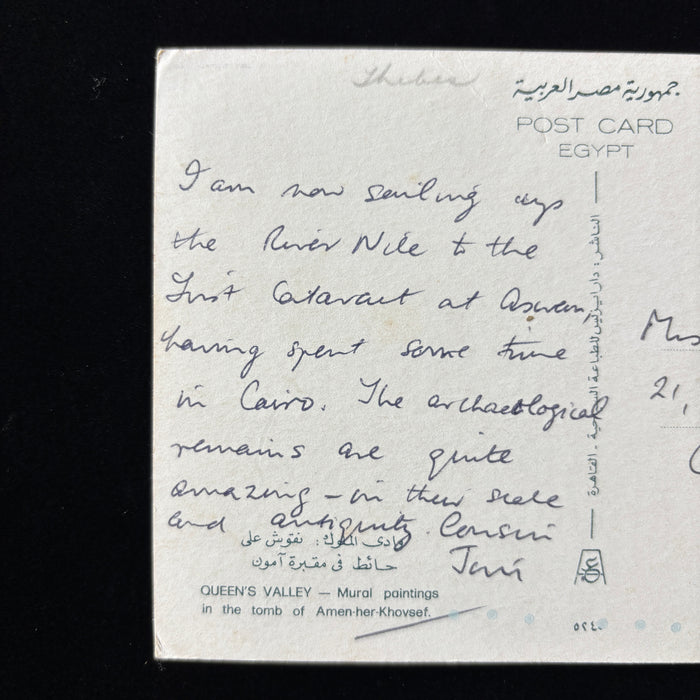 Thebes
جمهورية مصر العربية
POST CARD
EGYPT
I am now sailing up
the River Nile to the
First Cataract at Aswan,
having spent some time
in Cairo. The archaeological
remains are quite
amazing – in their scale
and antiquity. Cousin
وادى الملوك: نقوش على
حائط فى مقبرة آمون
QUEEN'S VALLEY — Mural paintings
in the tomb of Amen-her-Khovsef.
الناشر: دار للطباعة القاهرة
21,
٥٢٤٠